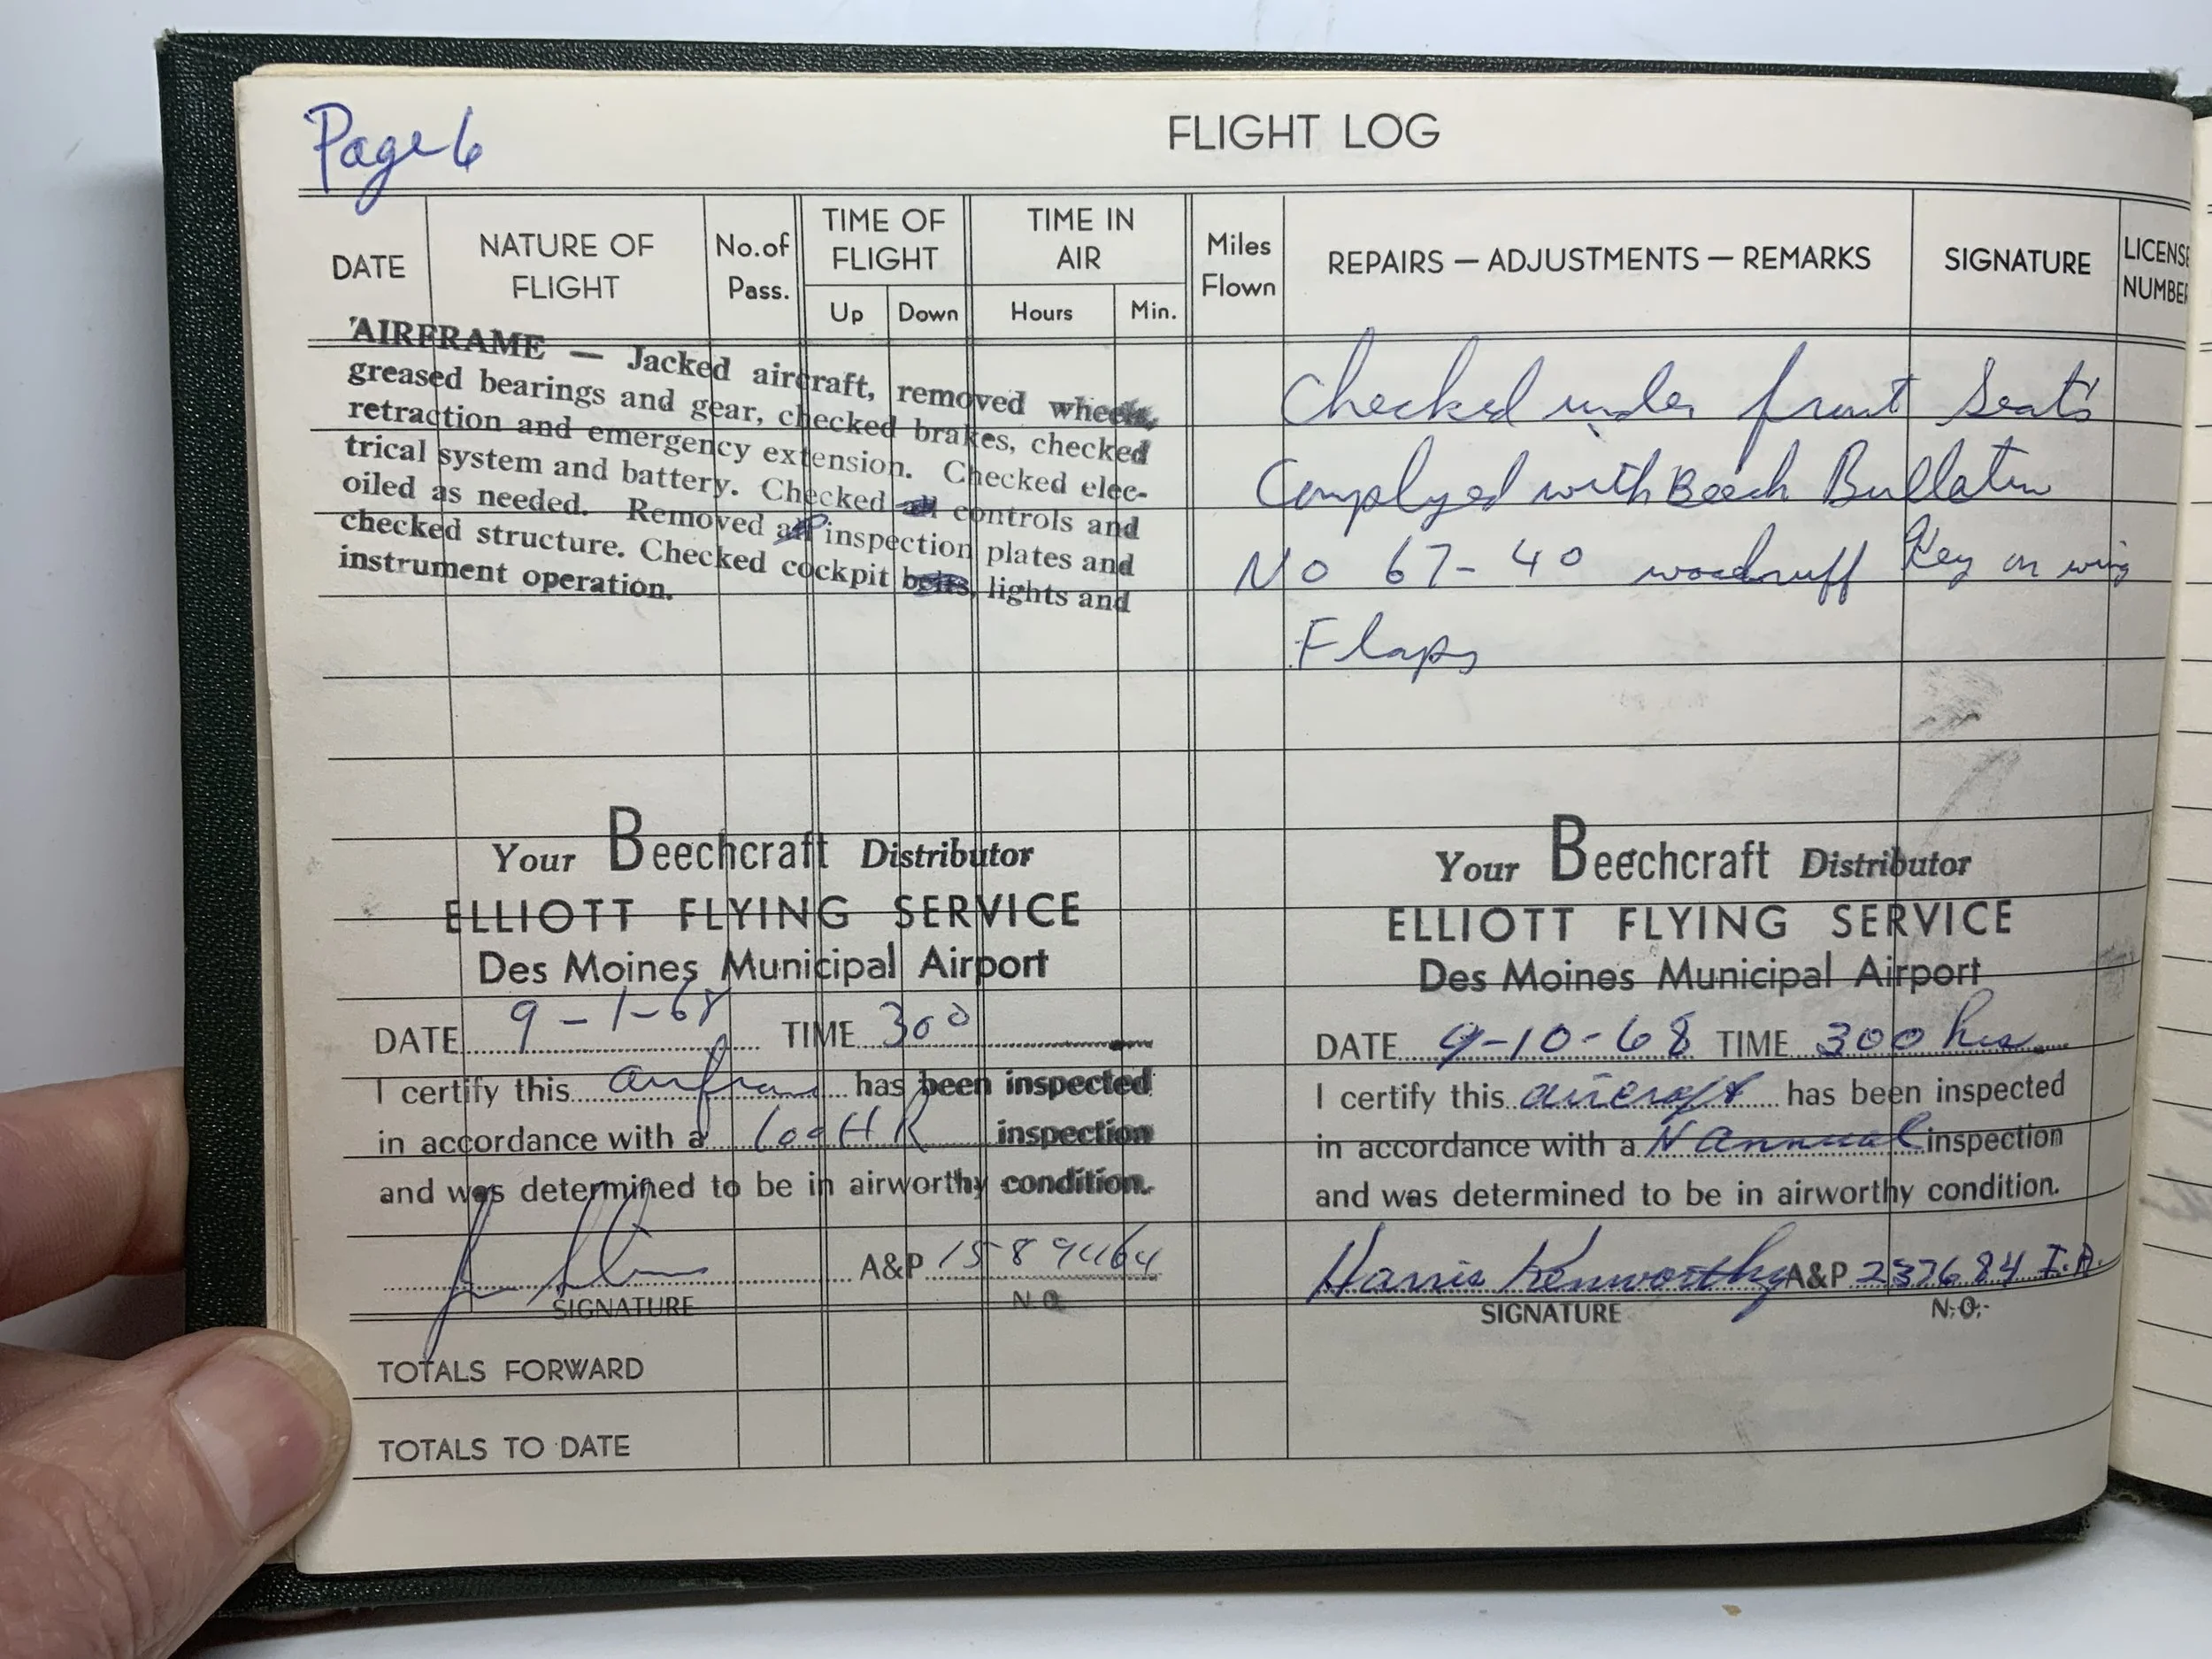 Page 6
FLIGHT LOG
DATE
NATURE OF
FLIGHT
No. of
Pass.
TIME OF
FLIGHT
Up Down
TIME IN
AIR
Hours Min.
Miles
Flown
REPAIRS — ADJUSTMENTS — REMARKS
SIGNATURE
LICENSE
NUMBER
AIRFRAME — Jacked aircraft, removed wheels,
greased bearings and gear, checked brakes, checked
retraction and emergency extension. Checked elec-
trical system and battery. Checked all controls and
oiled as needed. Removed all inspection plates and
checked structure. Checked cockpit belts, lights and
instrument operation.
Checked under front Seats
Complyed with Beech Bullatin
No 67-40 woodruff Key on wing
Flaps
Your Beechcraft Distributor
ELLIOTT FLYING SERVICE
Des Moines Municipal Airport
DATE 9-1-68 TIME 300
I certify this airframe has been inspected
in accordance with a 100 HR inspection
and was determined to be in airworthy condition.
A&P
SIGNATURE N.O.
Your Beechcraft Distributor
ELLIOTT FLYING SERVICE
Des Moines Municipal Airport
DATE 9-10-68 TIME 300 hrs
I certify this aircraft has been inspected
in accordance with a N Annual inspection
and was determined to be in airworthy condition.
Harris Kenworthy A&P 237684 I.A.
SIGNATURE N.O.
TOTALS FORWARD
TOTALS TO DATE